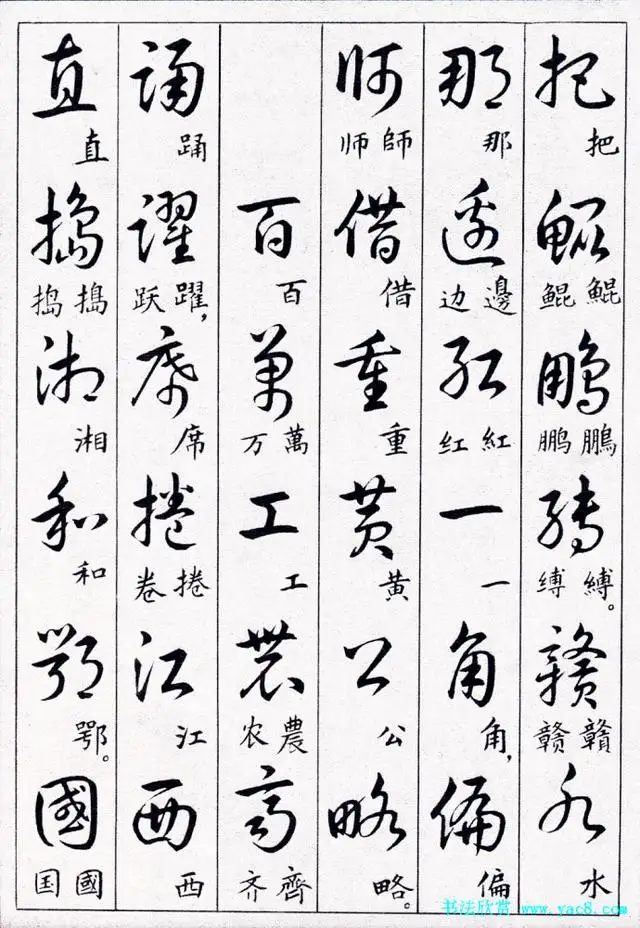 把鯤鵬縛贛水
把 鯤鲲 鵬鹏 縛缚。 贛赣 水
那邊紅一角偏
那 邊边 紅红 一 角， 偏
師借重黄公略
師师 借 重 黄 公 略。
百萬工農齊
百 萬万 工 農农 齊齐
踊躍席捲江西
踊 躍跃， 席 捲卷 江 西
直搗湘和鄂國
直 搗捣 湘 和 鄂。 國国
书法欣赏 www.yac8.com